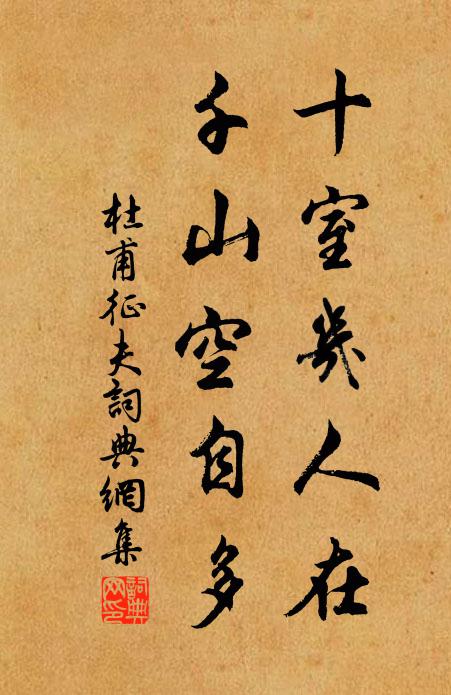 十室幾人在
千山空自多
杜甫征夫詞典網集
詞典
网印